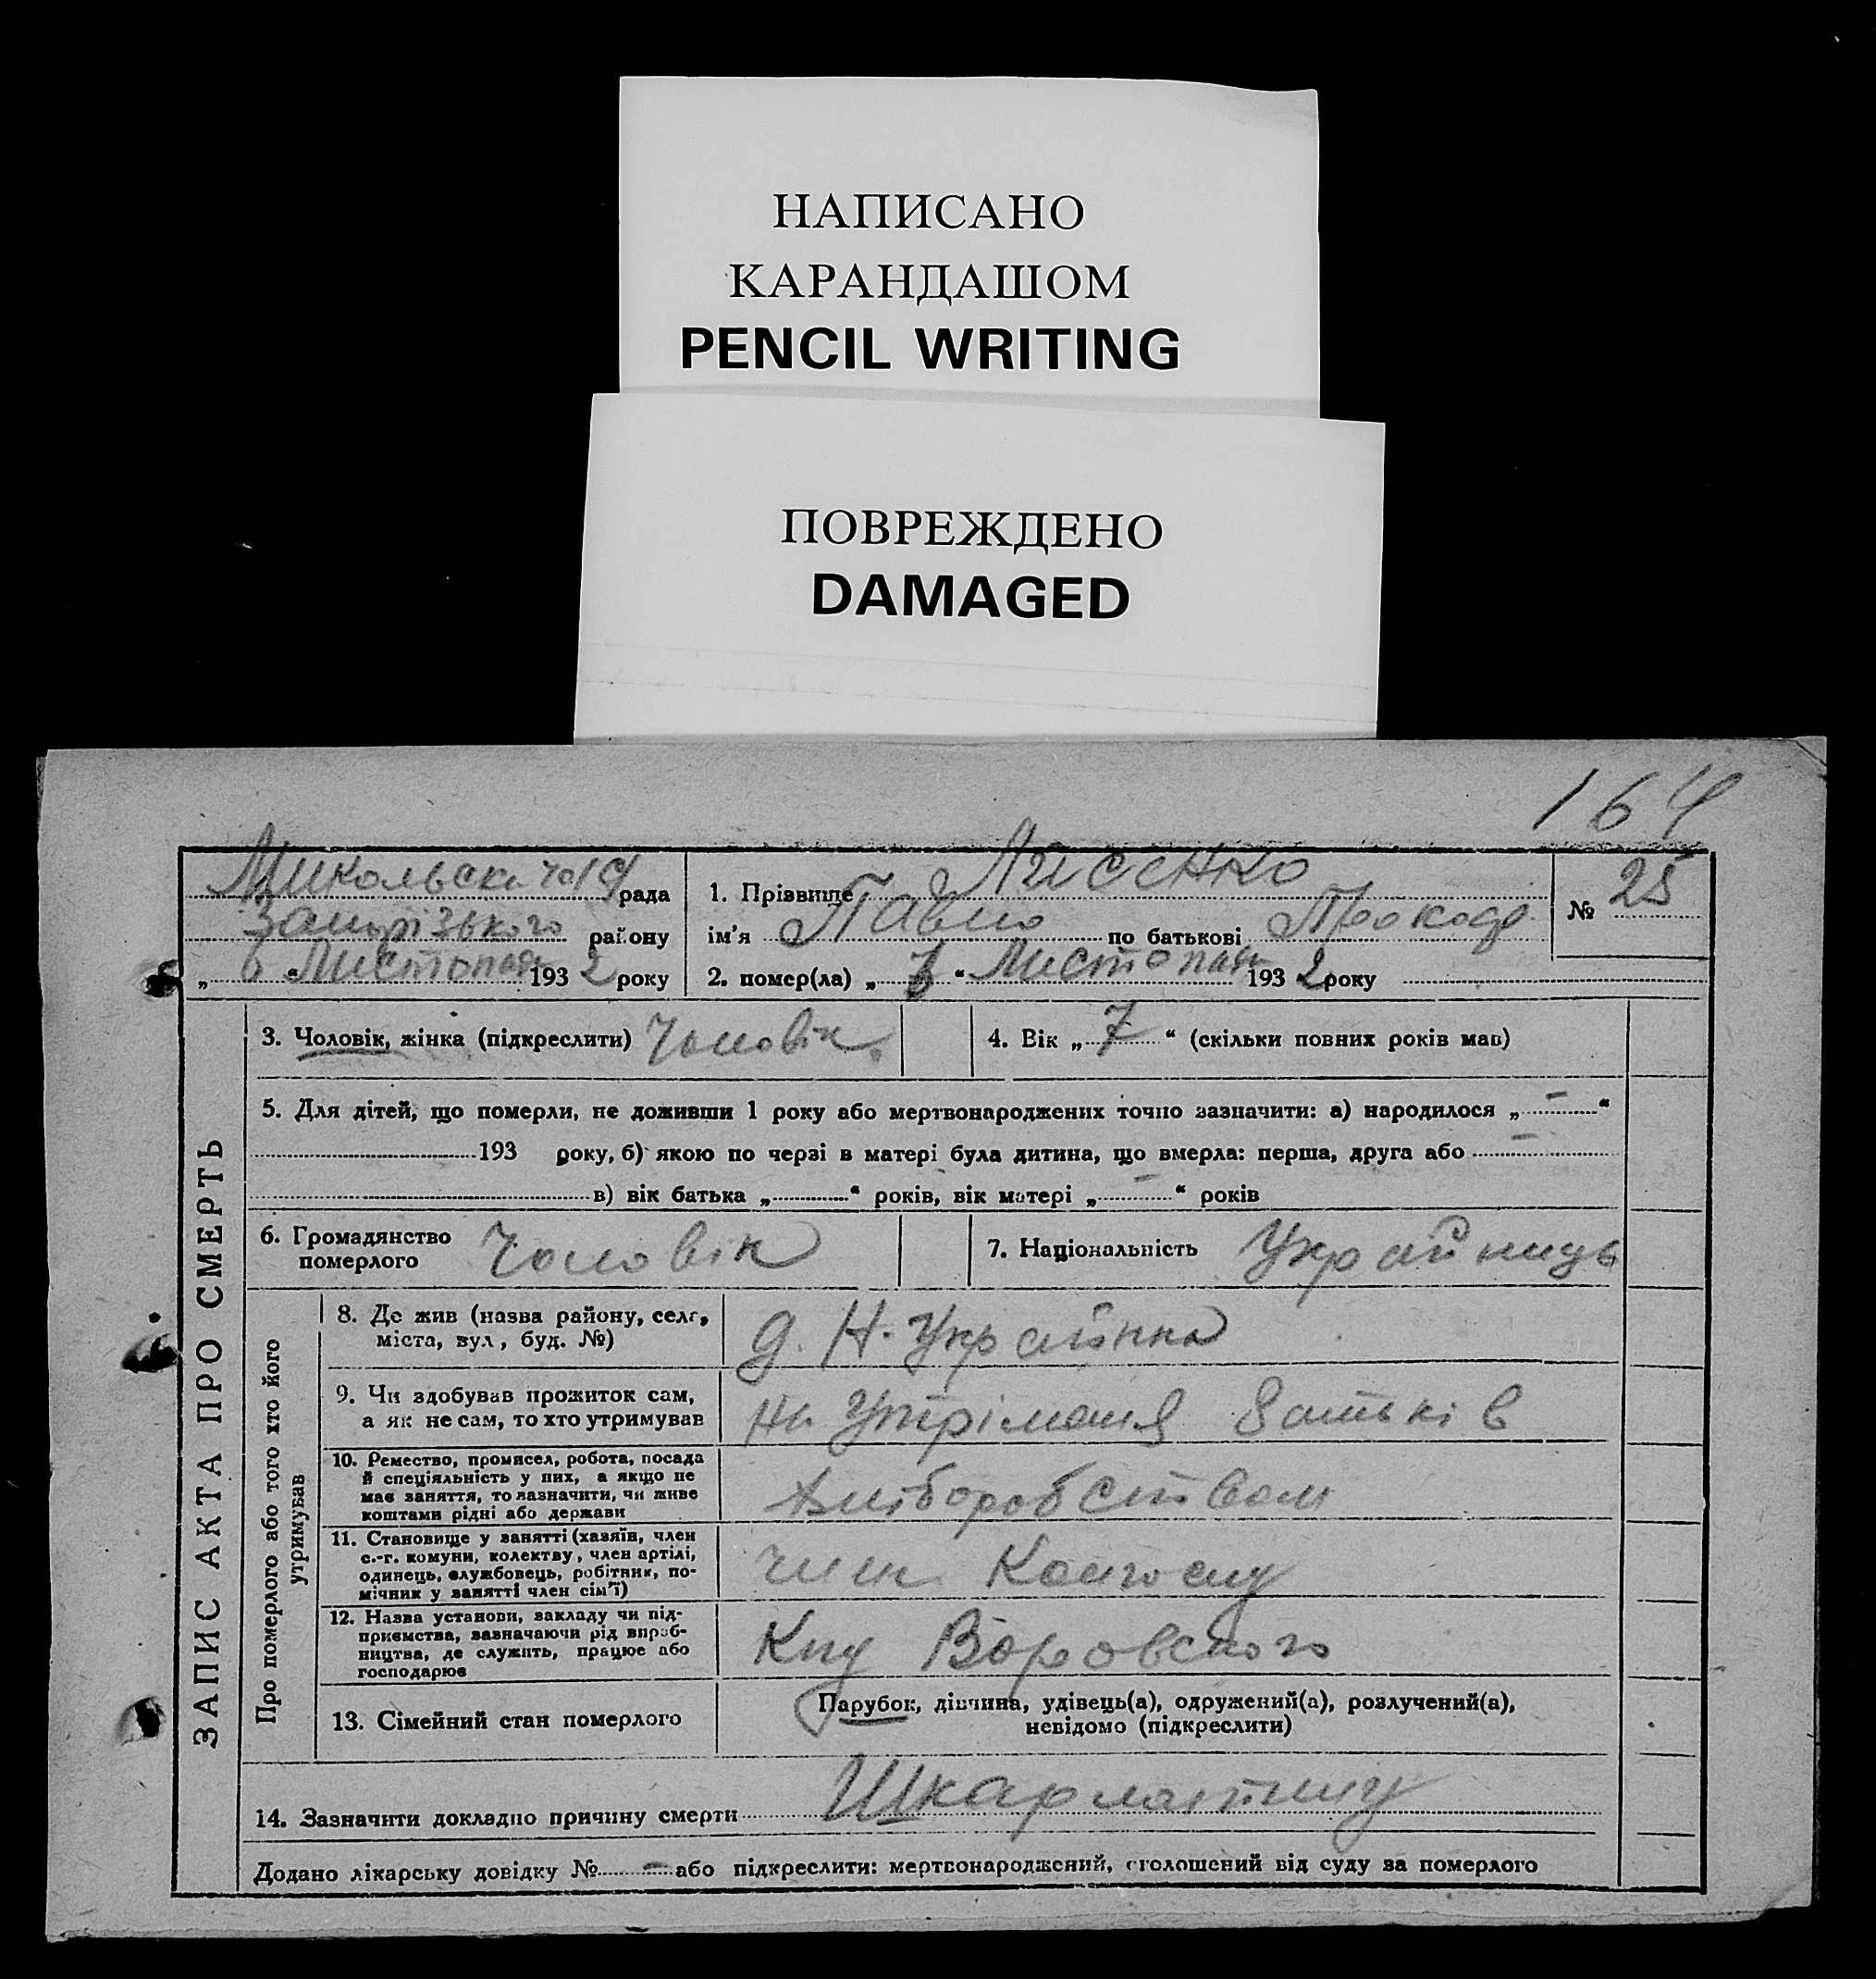 НАПИСАНО
КАРАНДАШОМ
PENCIL WRITING
ПОВРЕЖДЕНО
DAMAGED
164
рада
Запорізького району
„6“ Листопада 1932 року
1. Прізвище Лисенко
ім'я Павло по батькові
2. помер(ла) „ “ Листопада 1932 року
№ 25
ЗАПИС АКТА ПРО СМЕРТЬ
3. Чоловік, жінка (підкреслити) Чоловік
4. Вік „7“ (скільки повних років мав)
5. Для дітей, що померли, не доживши 1 року або мертвонароджених точно зазначити: а) народилося „-“
193 року, б) якою по черзі в матері була дитина, що вмерла: перша, друга або -
в) вік батька „ “ років, вік матері „-“ років
6. Громадянство
померлого Чоловік
7. Національність Украйниць
Про померлого або того хто його
утримував
8. Де жив (назва району, села,
міста, вул, буд. №)
Н-Украйнка
9. Чи здобував прожиток сам,
а як не сам, то хто утримував
На Утріманя батьків
10. Ремество, промисел, робота, посада
й спеціяльність у них, а якщо не
має заняття, то зазначити, чи живе
коштами рідні або держави
11. Становище у занятті (хазяїн, член
с.-г. комуни, колектву, член артілі,
одинець, службовець, робітник, по-
мічник у занятті член сім'ї)
член Колгоспу
12. Назва установи, закладу чи під-
приємства, зазначаючи рід вироб-
ництва, де служить, працює або
господарює
Воровского
13. Сімейний стан померлого
Парубок, дівчина, удівець(а), одружений(а), розлучений(а),
невідомо (підкреслити)
14. Зазначити докладно причину смерти Шкарлатину
Додано лікарську довідку № - або підкреслити: мертвонароджений, оголошений від суду за померлого